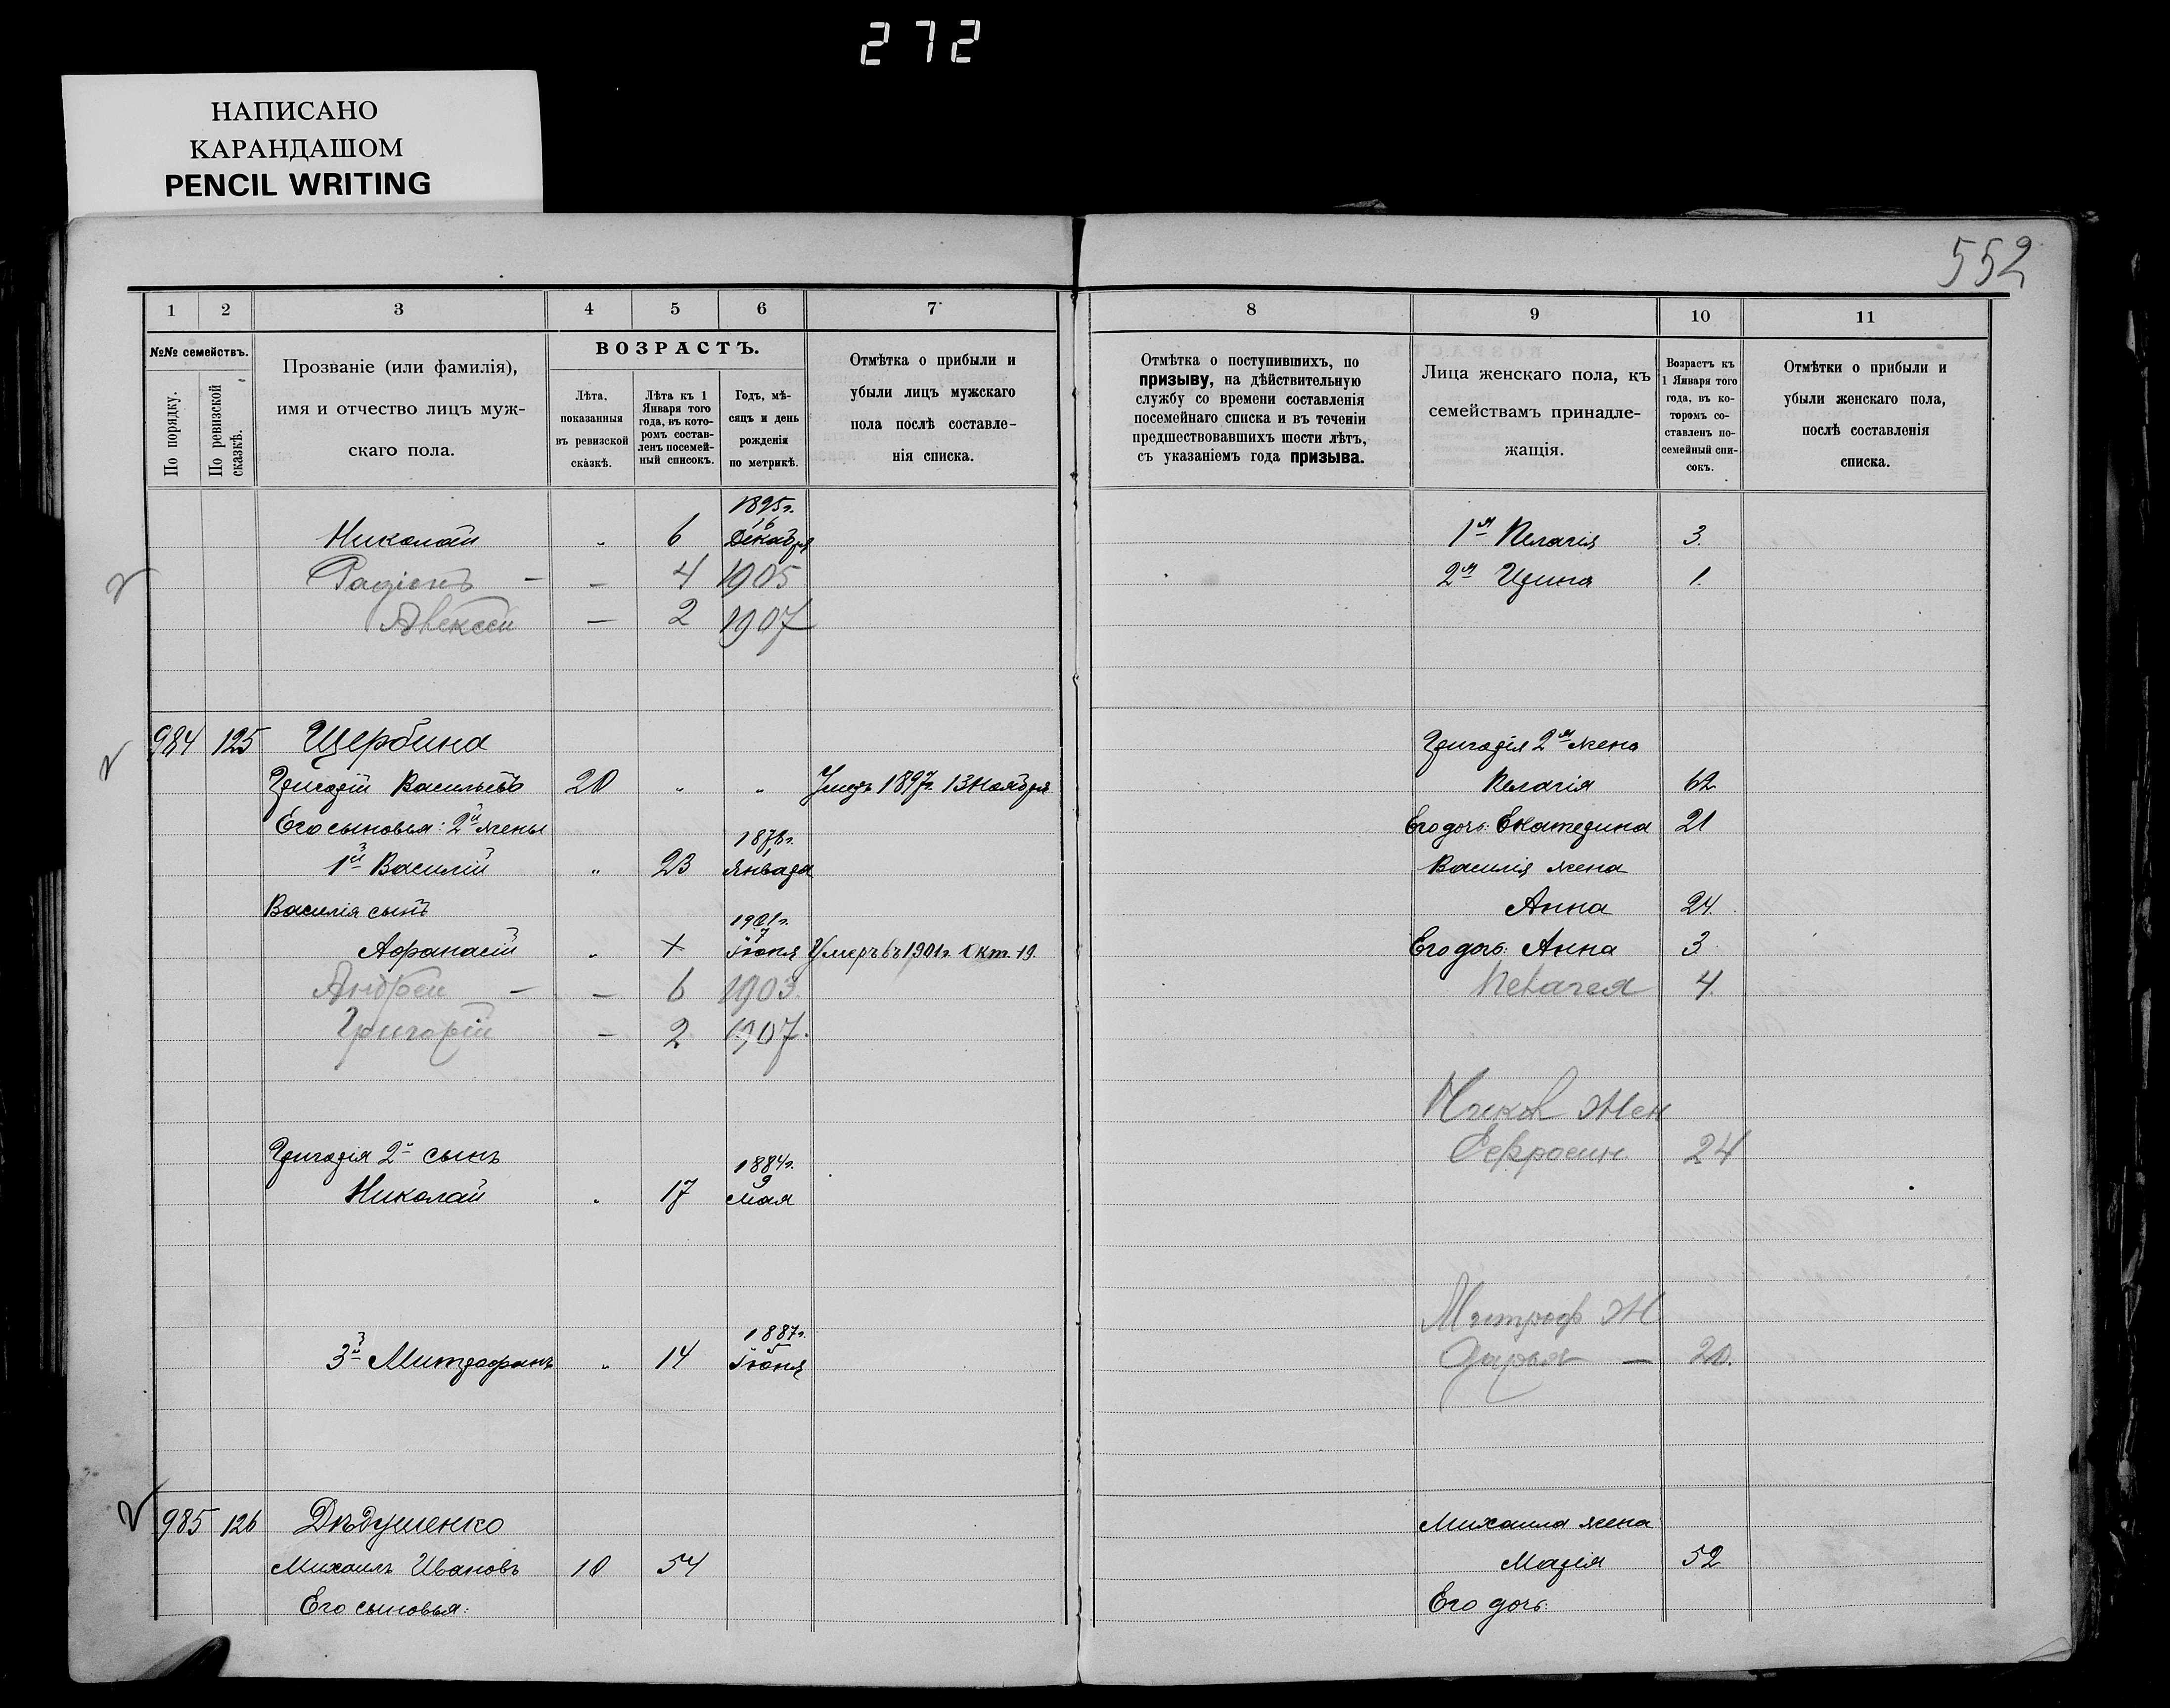 272
НАПИСАНО
КАРАНДАШОМ
PENCIL WRITING
552
1 2 3 4 5 6 7
№№ семействъ.
По порядку.
По ревизской сказкѣ.
Прозваніе (или фамилія),
имя и отчество лицъ муж-
скаго пола.
ВОЗРАСТЪ.
Лѣта,
показанныя
въ ревизской
сказкѣ.
Лѣта къ 1
Января того
года, въ кото-
ромъ состав-
ленъ посемей-
ный списокъ.
Годъ, мѣ-
сяцъ и день
рожденія
по метрикѣ.
Отмѣтка о прибыли и
убыли лицъ мужскаго
пола послѣ составле-
нія списка.
1895г.
16
Николай " 6 Декабря
Радіонъ — — 4 1905
Алексей — 2 1907
984 125 Щербина
Григорій Васильевъ 20 " " Умеръ 1897г. 13 Ноября
Его сыновья: 2й жены
1878г.
1й Василій " 23 Января
Василія сынъ
1901г.
7
Афанасій " + Іюня Умеръ въ 1901г. Окт. 19.
Андрей — — 6 1903.
Григорій — 2 1907.
Григорія 2й сынъ
1884г.
9
Николай " 17 Мая
1887г.
3й Митрофанъ " 14 Іюня
985 126 Дѣдушенко
Михаилъ Ивановъ 10 54
Его сыновья:
8 9 10 11
Отмѣтка о поступившихъ, по
призыву, на дѣйствительную
службу со времени составленія
посемейнаго списка и въ теченіи
предшествовавшихъ шести лѣтъ,
съ указаніемъ года призыва.
Лица женскаго пола, къ
семействамъ принадле-
жащія.
Возрастъ къ
1 Января того
года, въ ко-
торомъ со-
ставленъ по-
семейный спи-
сокъ.
Отмѣтки о прибыли и
убыли женскаго пола,
послѣ составленія
списка.
1я Пелагія 3.
2я Ирина 1.
Григорія 2я жена
Пелагія 62
Его дочь: Екатерина 21
Василія жена
Анна 24.
Его дочь: Анна 3
Пелагея 4.
Никол Жен
Ефросин 24
Митроф Ж
Дарья — 20.
Михаила жена
Марія 52
Его дочь: